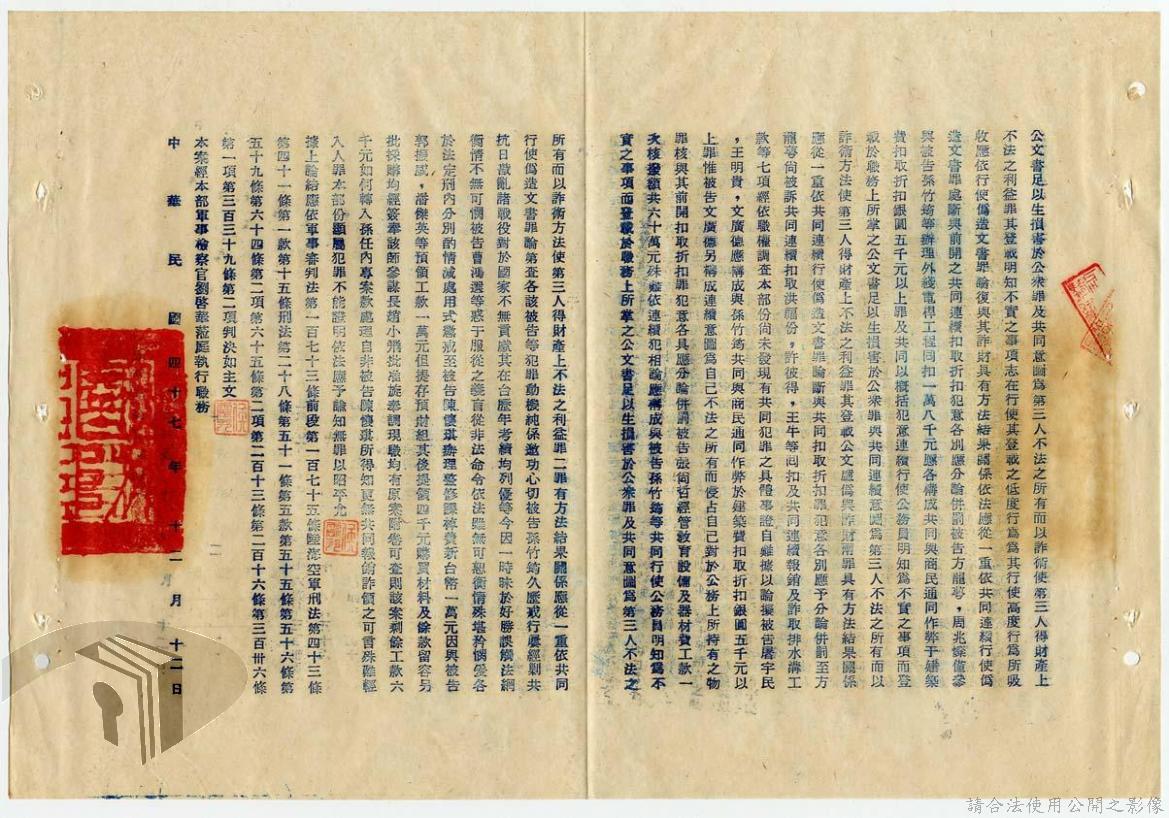 公文書足以生損害於公眾罪及共同意圖為第三人不法之所有而以詐術使第三人得財產上
不法之利益罪其登載明知不實之事項志在行使其登載之低度行為為其行使高度行為所吸
收應依行使偽造文書罪論復與其詐財具有方法結果關係依法應從一重依共同連續行使偽
造文書罪處斷與前開之共同連續扣取折扣犯意各別應分論併罰被告方龍夢,周兆
與被告孫竹筠等辦理外綫電桿工程同扣一萬八千元應各構成共同與商民通同作弊于建築
費扣取折扣銀圓五千元以上罪及共同以概括犯意連續行使公務員明知為不實之事項而登
載於職務上所掌之公文書足以生損害於公眾罪與共同連續意圖為第三人不法之所有而以
詐術方法使第三人得財產上不法之利益罪其登載公文處偽與詐財兩罪具有方法結果關係
應從一重依共同連續行使偽造文書罪論斷與共同扣取折扣罪犯意各別應予分論併罰至方
龍夢尚被訴共同連續扣取洪福份,許彼得,王午等回扣及共同連續報銷及詐取排水溝工
款等七項經依職權調查本部份尚未發現有共同犯罪之具體事證自難據以論擬被告屠宇民
,王明貴,文廣德應構成與孫竹筠共同與商民通同作弊於建築費扣取折扣銀圓五千元以
上罪惟被告文廣德另構成連續意圖為自己不法之所有而侵占自己對於公務上所持有之物
罪核與其前開扣取折扣罪犯意各具應分論併罰被告張尚哲經管教育設備及器材費工款一
次核撥額共六十萬元殊難依連續犯相論應構成與被告孫竹筠等共同行使公務員明知為不
實之事項而登載於職務上所掌之公文書足以生損害於公眾罪及共同意圖為第三人不法之
所有而以詐術方法使第三人得財產上不法之利益罪二罪有方法結果關係應從一重依共同
行使偽造文書罪論第查各該被告等犯罪動機純係邀功心切被告孫竹筠久歷戎行屢經剿共
抗日戡亂諸戰役對於國家不無貢獻其在台歷年考績均列優等今因一時昧於好勝誤觸法網
衡情不無可憫被告曹鴻選等惑于服從之義盲從非法命令依法雖無可恕衡情殊堪矜憫爰各
於法定刑內分別酌情減處用式懲戒至被告陳懷琪辦理整修課桌費新台幣一萬元因與被告
郭振威,潘傑英等預領工款一萬元但提存預財組其後提領四千元購買材料及餘款留容另
批採購均經簽奉該師參謀長趙小弼批准旋奉調現職均有原案附卷可查則該案剩餘工款六
千元如何轉入孫任內專案款處理自非被告陳懷琪所得知更無共同報銷詐領之可言殊難經
入人罪本部份顯屬犯罪不能證明依法應予諭知無罪以昭平允
據上論結應依軍事審判法第一百七十三條前段第一百七十五條陸海空軍刑法第四十三條
第四十一條第一款第十五條刑法第二十八條第五十一條第五款第五十五條第五十六條第
五十九條第六十四條第二項第六十五條第二項第二百十三條第二百十六條第三百卅六條
第一項第三百三十九條第二項判決如主文
本案經本部軍事檢察官劉啓華蒞庭執行職務
中華民國四十七年十二月十二日
請合法使用公開之影像